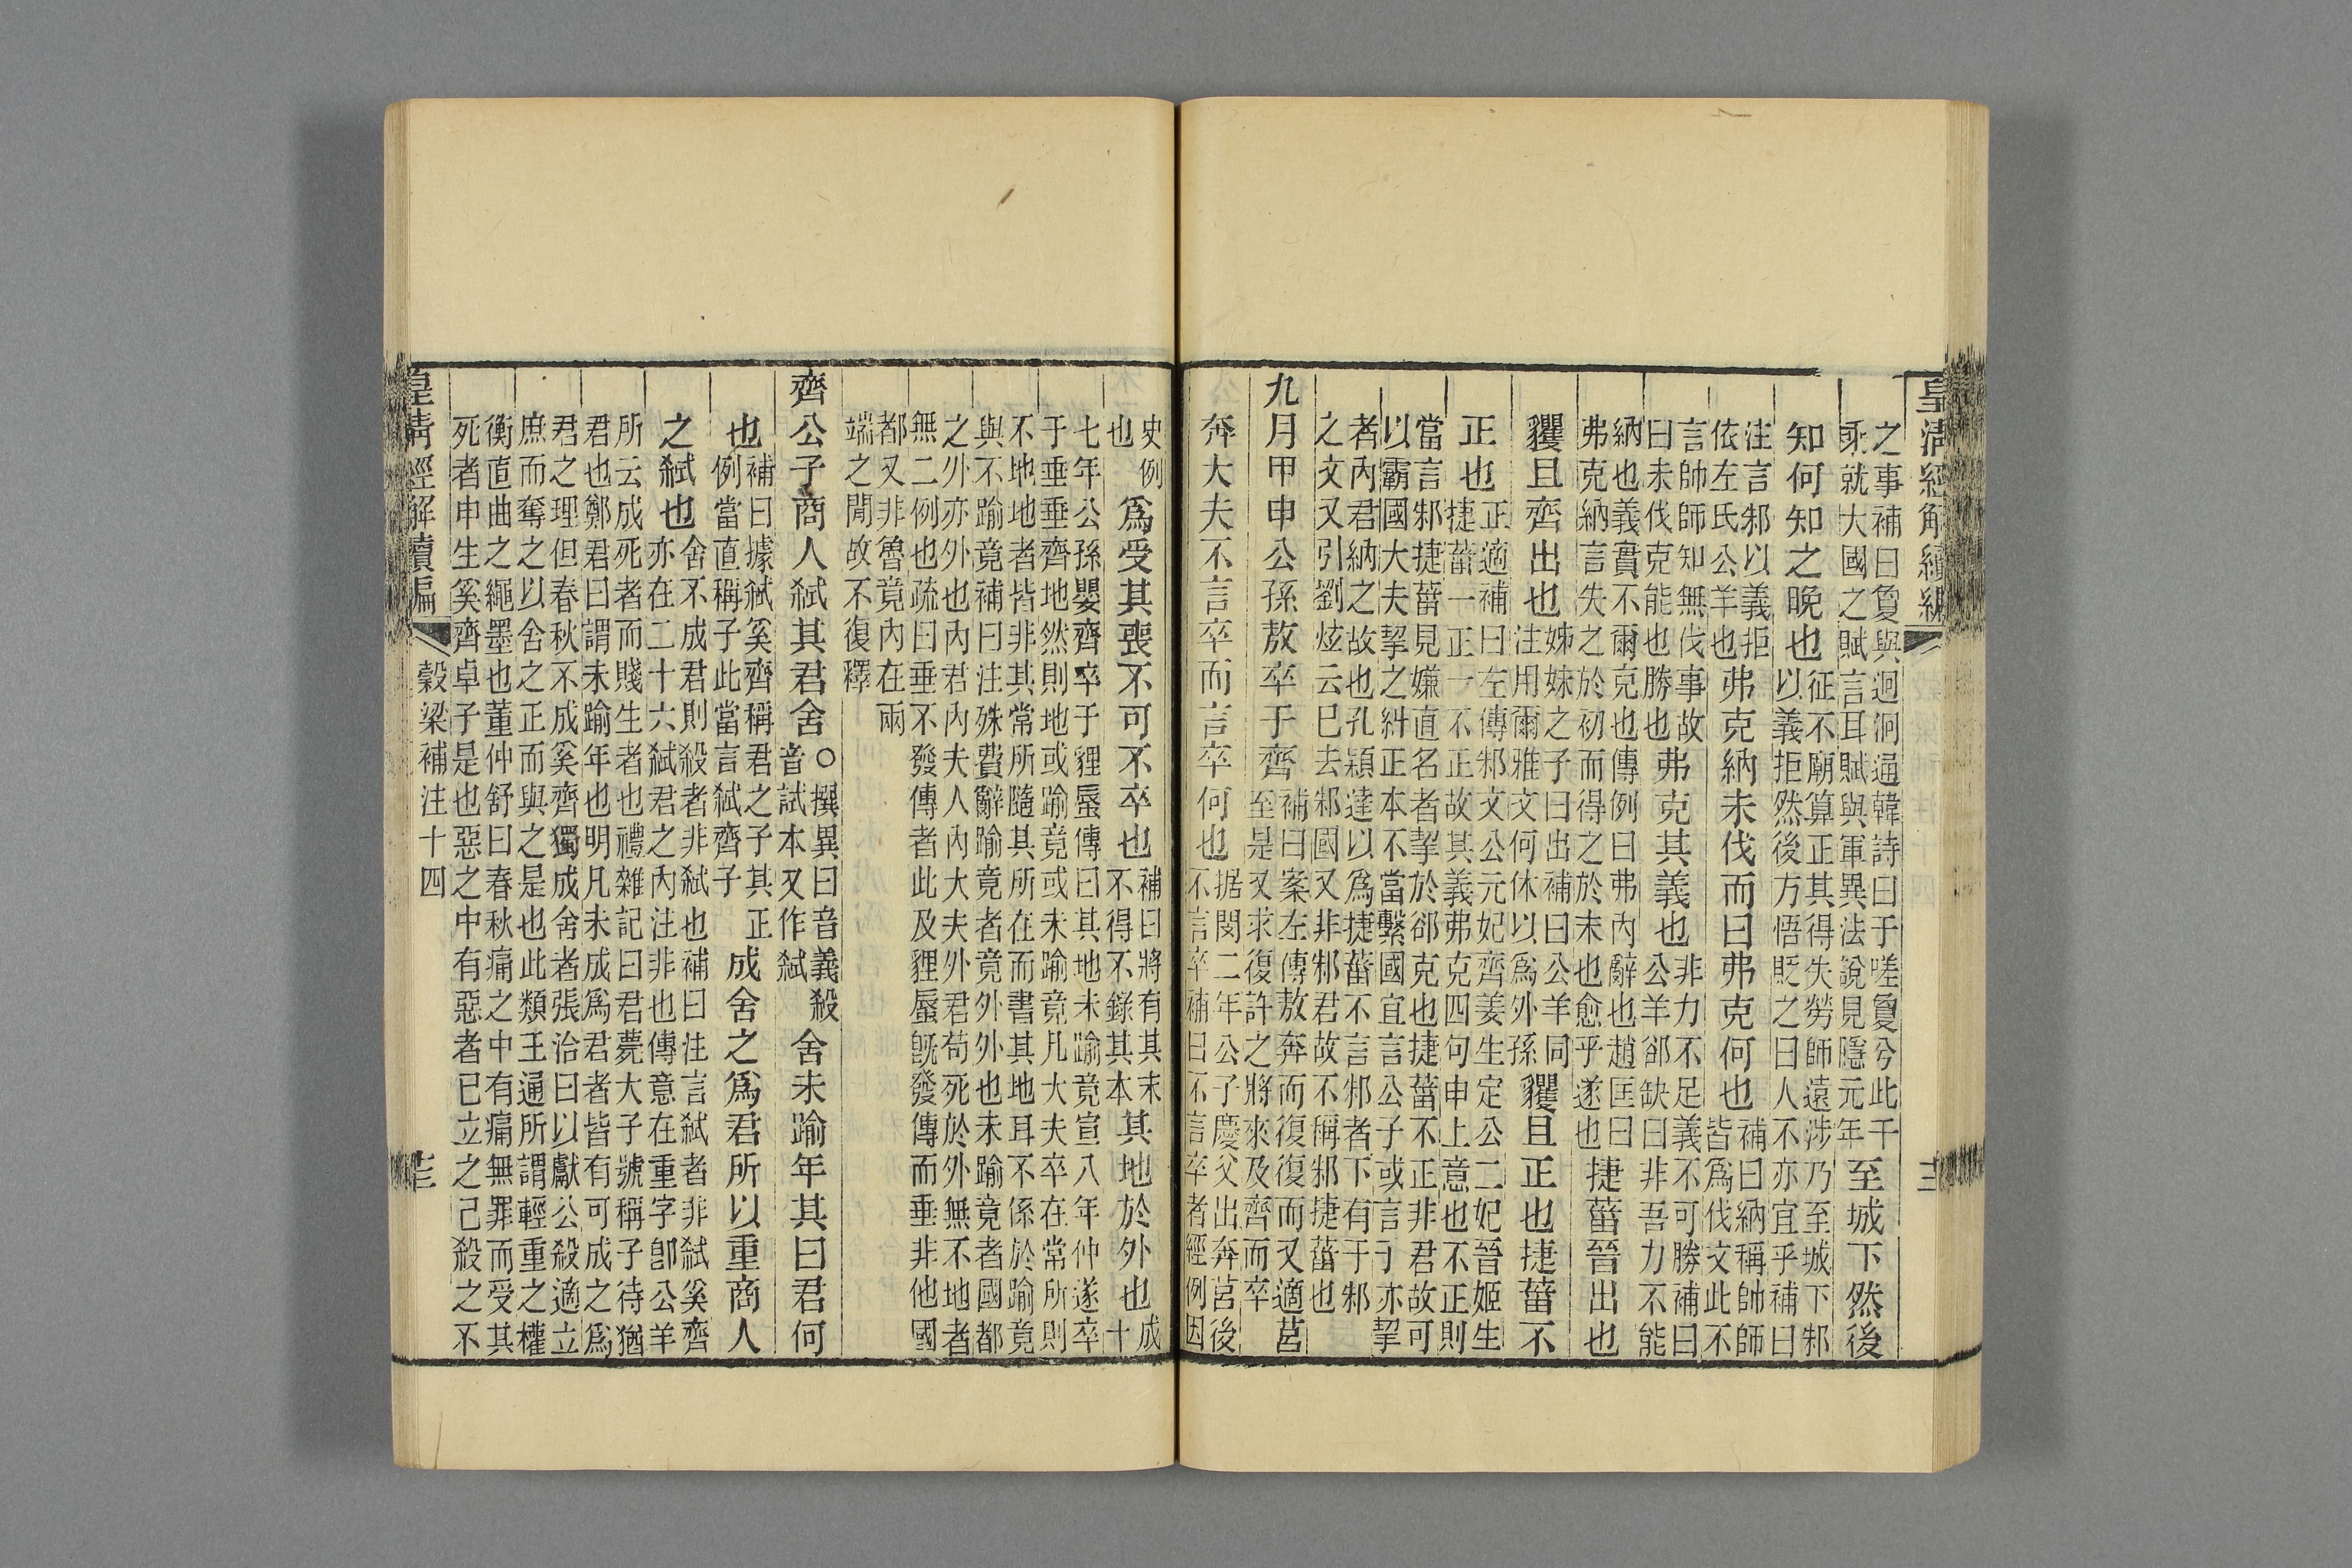 皇清經解續編
之事補曰敻與迥洞通韓詩曰于嗟敻兮此千
乘就大國之賦言耳賦與軍異法說見隱元年至城下然後
知何知之晚也征不廟算正其得失勞師遠涉乃至城下邾
以義拒然後方悟貶之曰人不亦宜乎補曰
注言邾以義拒
依左氏公羊也弗克納未伐而曰弗克何也補曰納稱帥師
皆爲伐文此不
言帥師知無伐事故
曰未伐克能也勝也弗克其義也非力不足義不可勝補曰
公羊郤缺曰非吾力不能
納也義實不爾克也傳例曰弗內辭也趙匡曰
弗克納言失之於初而得之於末也愈乎遂也捷菑晉出也
貜且齊出也姊妹之子曰出補曰公羊同
注用爾雅文何休以爲外孫貜且正也捷菑不
正也正適補曰左傳邾文公元妃齊姜生定公二妃晉姬生
捷菑一正一不正故其義弗克四句申上意也不正則
當言邾捷菑見嫌直名者挈於郤克也捷菑不正非君故可
以霸國大夫挈之糾正本不當繫國宜言公子或言于亦挈
者內君納之故也孔穎達以爲捷菑不言邾者下有于邾
之文又引劉炫云已去邾國又非邾君故不稱邾捷菑也
九月甲申公孫敖卒于齊補曰案左傳敖奔而復復而又適莒
至是又求復許之將來及齊而卒
奔大夫不言卒而言卒何也据閔二年公子慶父出奔莒後
不言卒補曰不言卒者經例因
史例
也爲受其喪不可不卒也補曰將有其末
不得不錄其本其地於外也成
十
七年公孫嬰齊卒于貍蜃傳曰其地未踰竟宣八年仲遂卒
于垂垂齊地然則地或踰竟或未踰竟凡大夫卒在常所則
不地地者皆非其常所隨其所在而書其地耳不係於踰竟
與不踰竟補曰注殊費辭踰竟者竟外外也未踰竟者國都
之外亦外也內君內夫人內大夫外君苟死於外無不地者
無二例也疏曰垂不發傳者此及貍蜃旣發傳而垂非他國
都又非魯竟內在兩
端之閒故不復釋
齊公子商人弑其君舍○撰異曰音義殺
音試本又作弑舍未踰年其曰君何
也補曰據弑奚齊稱君之子其正
例當直稱子此當言弑齊子成舍之爲君所以重商人
之弑也舍不成君則殺者非弑也補曰注言弑者非弑奚齊
亦在二十六弑君之內注非也傳意在重字卽公羊
所云成死者而賤生者也禮雜記曰君薨大子號稱子待猶
君也鄭君曰謂未踰年也明凡未成爲君者皆有可成之爲
君之理但春秋不成奚齊獨成舍者張洽曰以獻公殺適立
庶而奪之以舍之正而與之是也此類王通所謂輕重之權
衡直曲之繩墨也董仲舒曰春秋痛之中有痛無罪而受其
死者申生奚齊卓子是也惡之中有惡者已立之己殺之不
皇清經解續編 穀梁補注十四